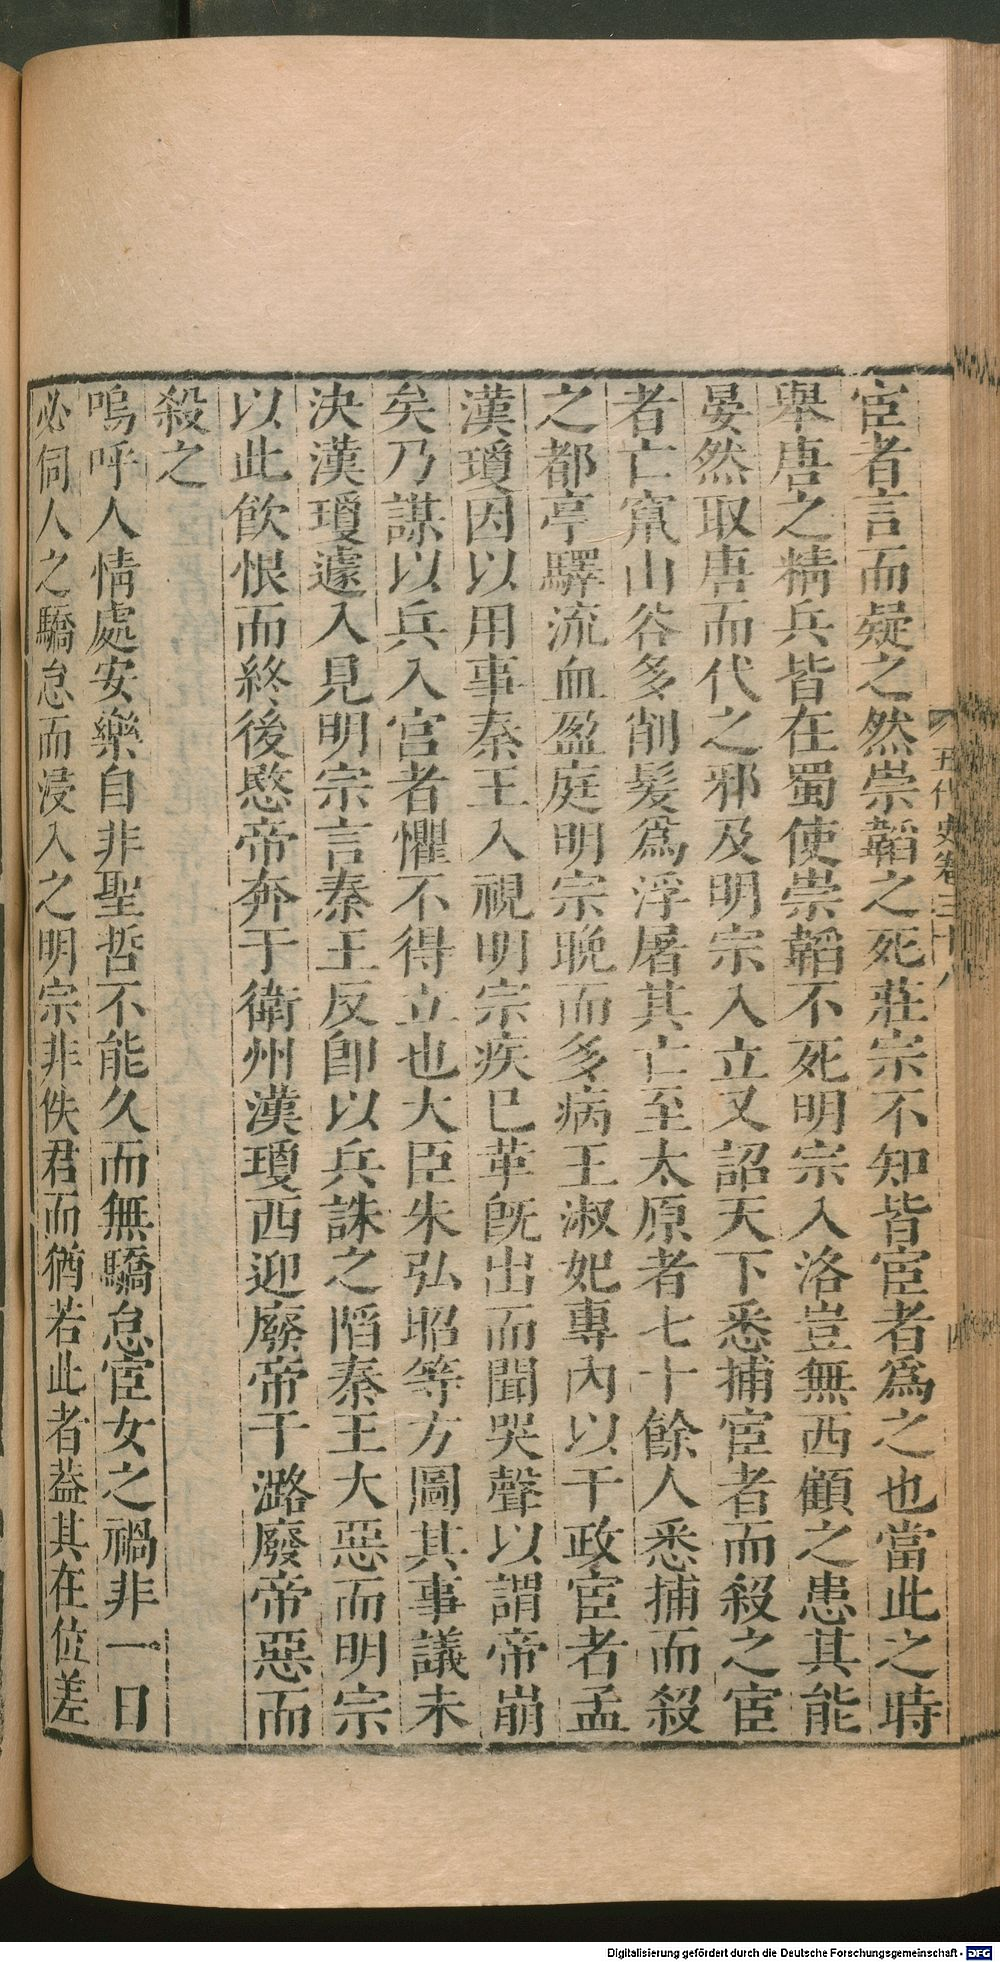 五代史卷三十八
四
宦者言而疑之然崇韜之死莊宗不知皆宦者爲之也當此之時
舉唐之精兵皆在蜀使崇韜不死明宗入洛豈無西顧之患其能
晏然取唐而代之邪及明宗入立又詔天下悉捕宦者而殺之宦
者亡竄山谷多削髮爲浮屠其亡至太原者七十餘人悉捕而殺
之都亭驛流血盈庭明宗晚而多病王淑妃專內以干政宦者孟
漢瓊因以用事秦王入視明宗疾已革旣出而聞哭聲以謂帝崩
矣乃謀以兵入宮者懼不得立也大臣朱弘昭等方圖其事議未
決漢瓊遽入見明宗言秦王反卽以兵誅之陷秦王大惡而明宗
以此飲恨而終後愍帝奔于衛州漢瓊西迎廢帝于潞廢帝惡而
殺之
嗚呼人情處安樂自非聖哲不能久而無驕怠宦女之禍非一日
必伺人之驕怠而浸入之明宗非佚君而猶若此者葢其在位差
Digitalisierung gefördert durch die Deutsche Forschungsgemeinschaft - DFG